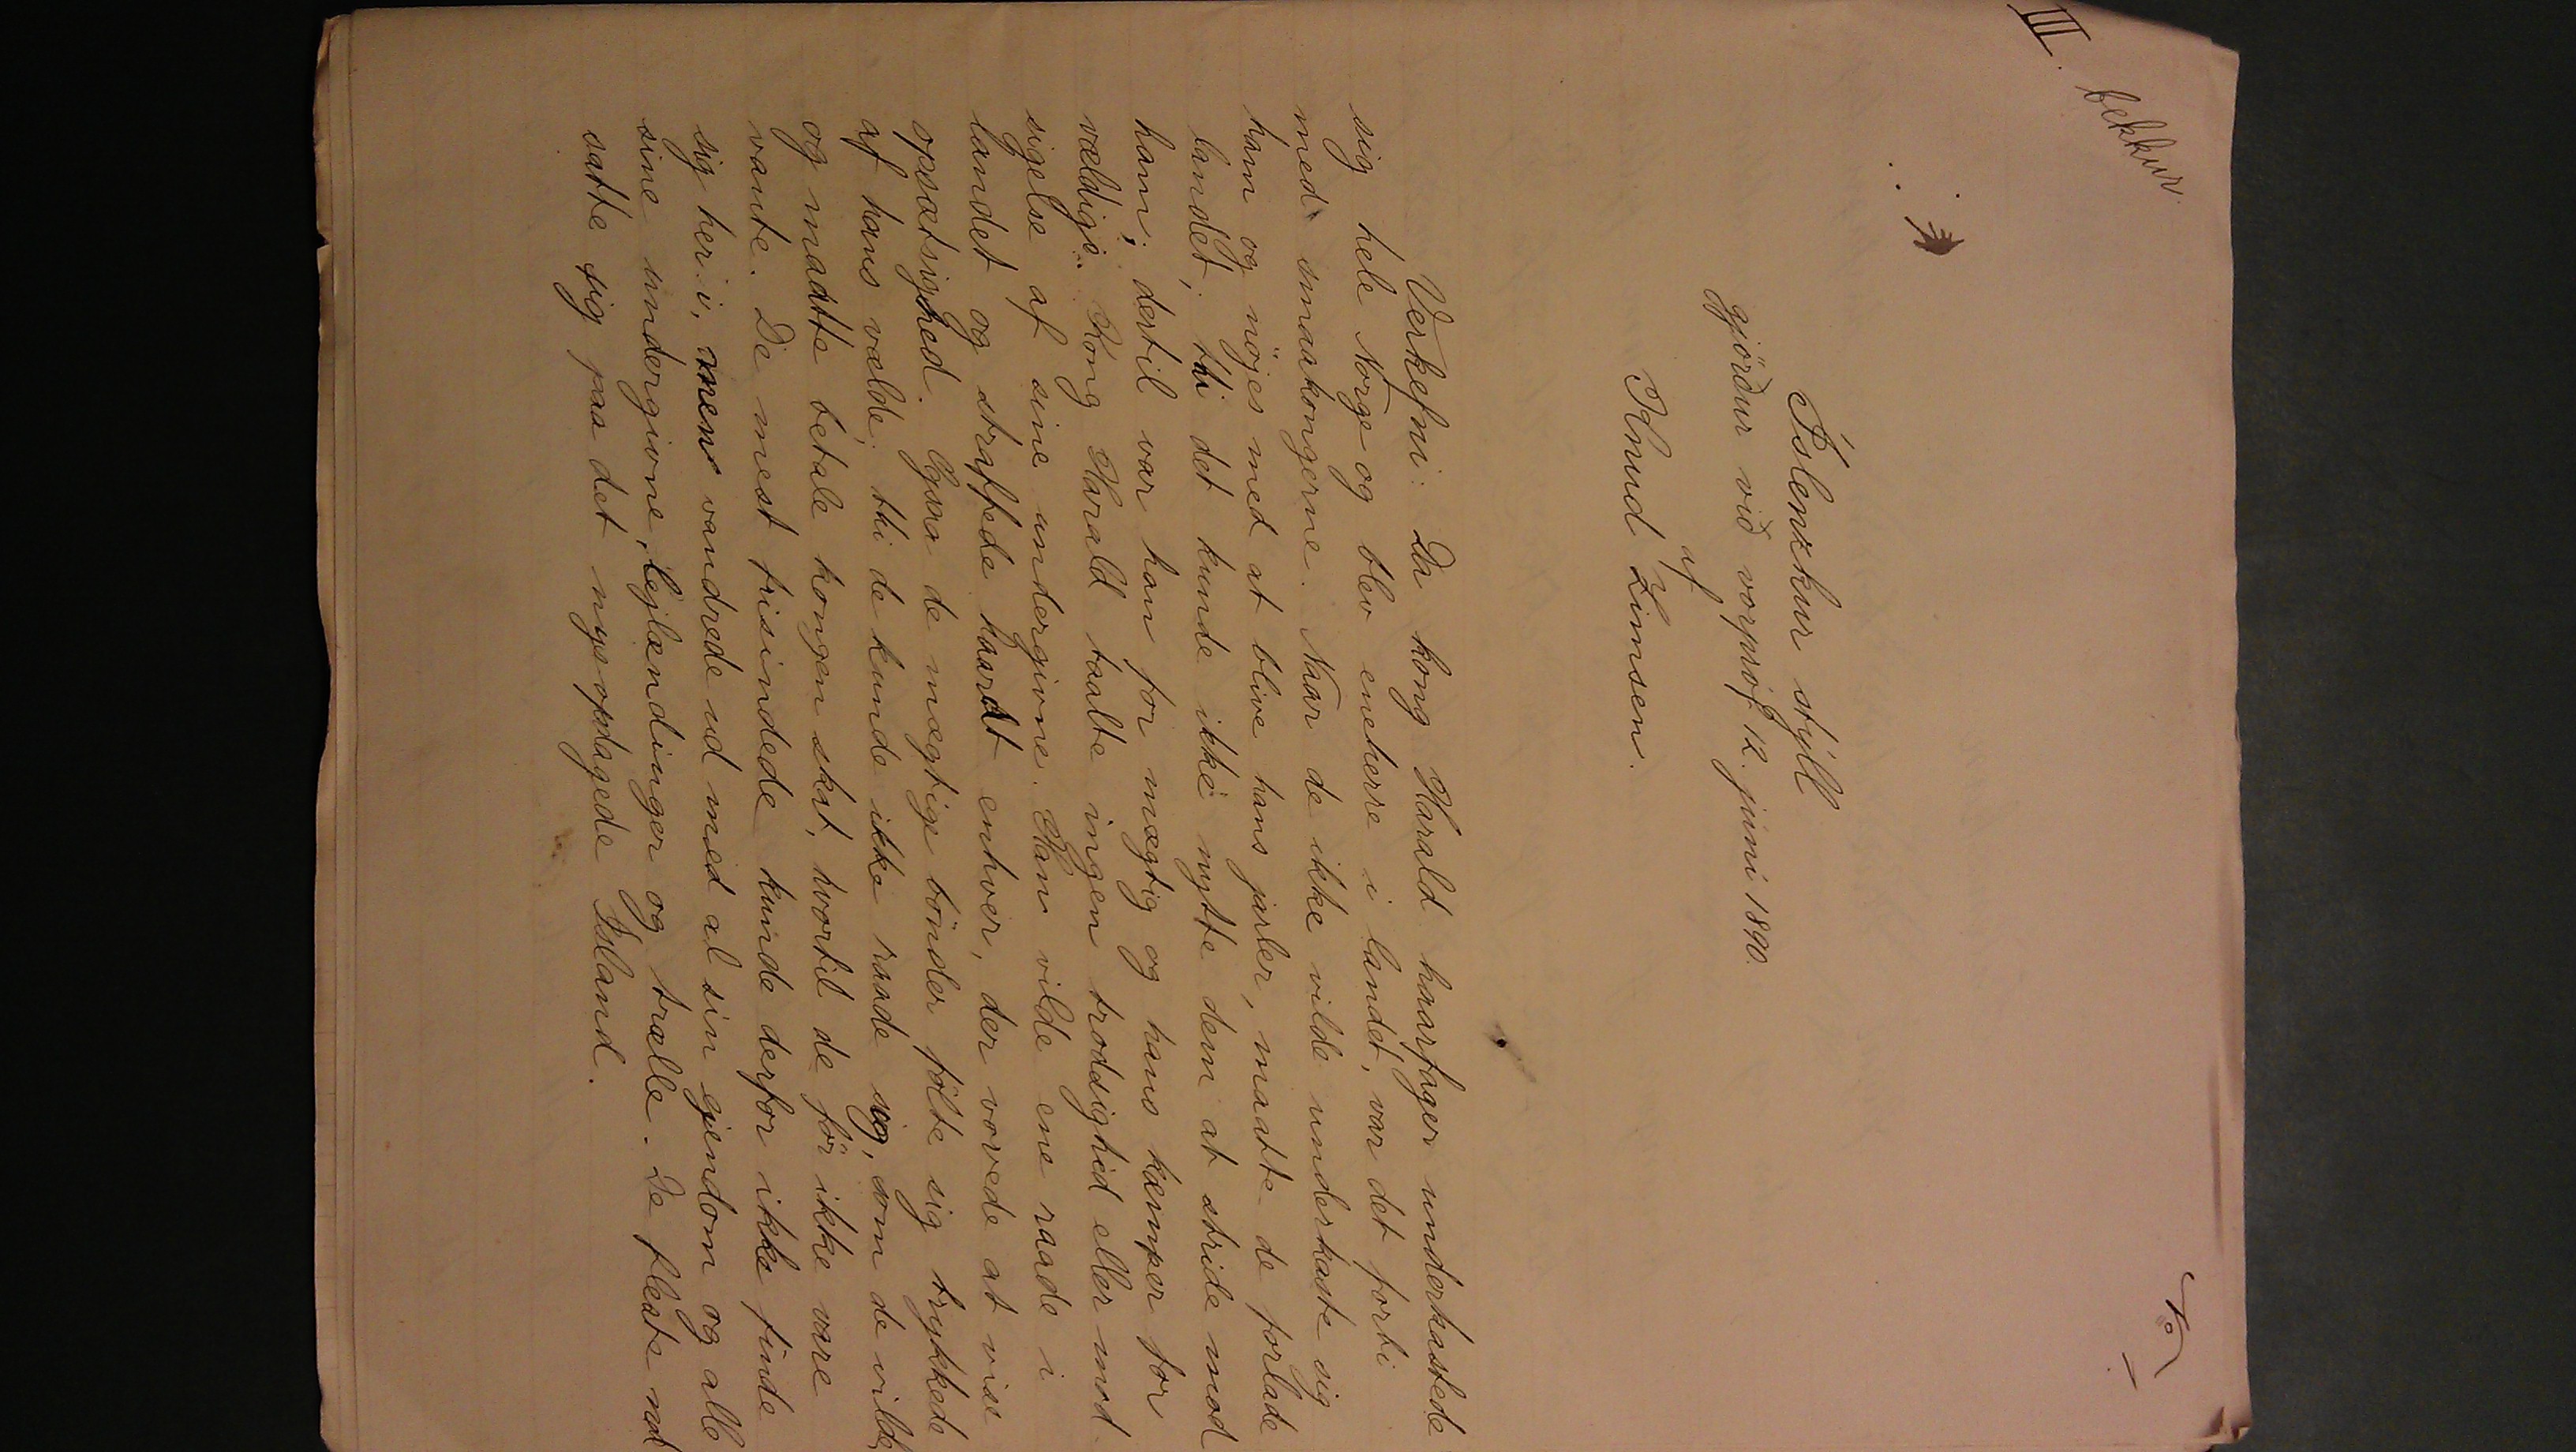 III. bekkur.
Íslenzkur stýll
gjörður við vorpróf 12. júni 1890.
af
Knud Zimsen.
Verkefni: Da kong Harald haarfager underkastede
sig hele Norge og blev eneherre i landet, var det forbi
med smaakongerne. Naar de ikke vilde underkaste sig
ham og nöjes med at blive hans jarler, maatte de forlade
landet, thi det kunde ikke nytte dem at stride mod
ham; dertil var han for mægtig og hans kæmper for
vældige. Kong Harald taalte ingen troddighed eller mod-
sigelse af sine undergivne. Han vilde ene raade i
landet og straffede haardt enhver, der vovede at vise
opsætsighed. Ogsaa de mægtige bönder fölte sig trykkede
af hans vælde, thi de kunde ikke raade sig, som de vilde,
og maatte betale kongen skat, hvortil de för ikke vare
vante. De mest frisindede kunde derfor ikke finde
sig her i, men vandrede ud med al sin ejendom og alle
sine undergivne, lejlændinger og trælle. De fleste ned
satte sig paa det nysopdagede Island.